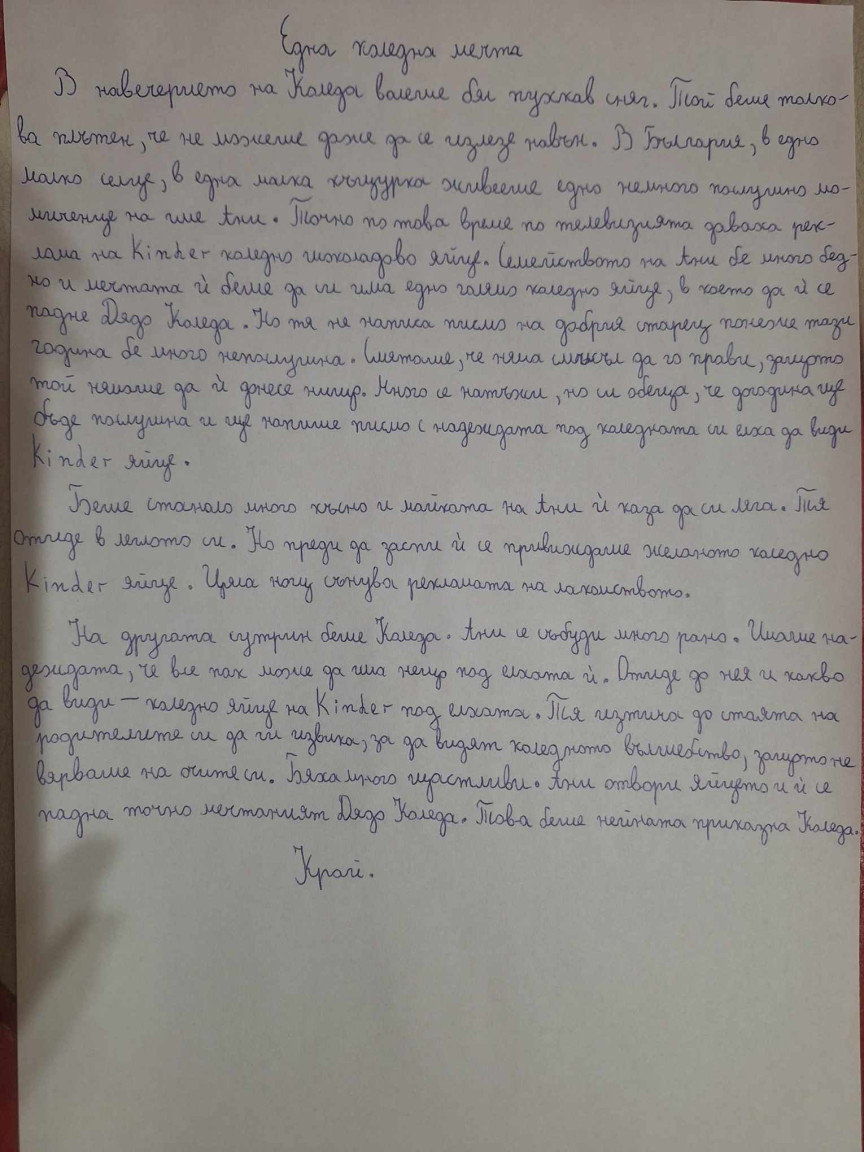 Една коледна мечта
В навечерието на Коледа валеше бял пухкав сняг. Той беше толко-
ва плътен, че не можеше даже да се излезе навън. В България, в едно
малко селце, в една малка къщурка живееше едно немного послушно мо-
миченце на име Ани. Точно по това време по телевизията даваха рек-
лама на Kinder коледно шоколадово яйце. Семейството на Ани бе много бед-
но и мечтата ѝ беше да си има едно голямо коледно яйце, в което да ѝ се
падне Дядо Коледа. Но тя не написа писмо на добрия старец понеже тази
година бе много непослушна. Смяташе, че няма смисъл да го прави, защото
той нямаше да ѝ донесе нищо. Много се натъжи, но си обеща, че догодина ще
бъде послушна и ще напише писмо с надеждата под коледната си елха да види
Kinder яйце.
Беше станало много късно и майката на Ани ѝ каза да си ляга. Тя
отиде в леглото си. Но преди да заспи ѝ се привиждаше желаното коледно
Kinder яйце. Цяла нощ сънува рекламата на лакомството.
На другата сутрин беше Коледа. Ани се събуди много рано. Имаше на-
деждата, че все пак може да има нещо под елхата ѝ. Отиде до нея и какво
да види – коледно яйце на Kinder под елхата. Тя изтича до стаята на
родителите си да ги извика, за да видят коледното вълшебство, защото не
вярваше на очите си. Бяха много щастливи. Ани отвори яйцето и ѝ се
падна точно мечтаният Дядо Коледа. Това беше нейната приказна Коледа.
Край.